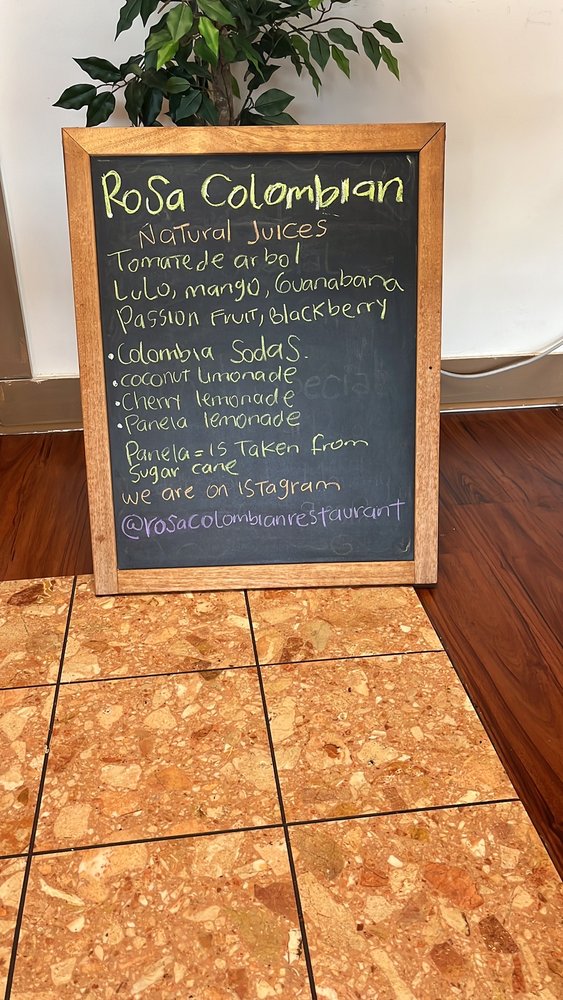 Rosa Colombian
Natural Juices
Tomate de arbol
Lulo, mango, Guanabana
Passion Fruit, Blackberry
• Colombia Sodas.
• coconut limonade
• Cherry lemonade
• Panela lemonade
Panela = is Taken from
Sugar cane
we are on istagram
@rosacolombianrestaurant